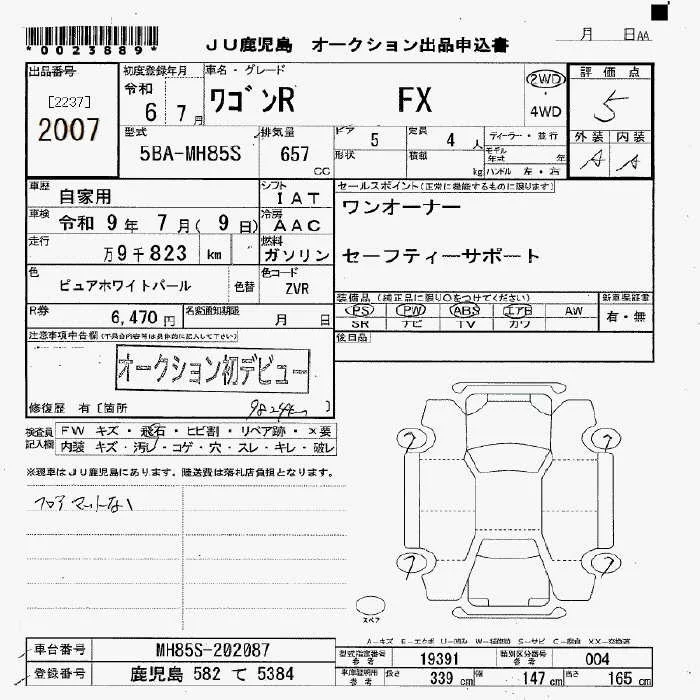 *0023889*
JU鹿児島 オークション出品申込書
月 日AA
出品番号
[2237]
2007
初度登録年月
令和
6 7月
車名・グレード
ワゴンR FX
2WD
・
4WD
評価点
5
外装 内装
A A
型式
5BA-MH85S
排気量
657
CC
ドア
5
定員
4人
ディーラー・並行
形状
積載
kg
モデル年式 年
ハンドル 左・右
車歴
自家用
シフト
IAT
車検
令和 9年 7月( 9日)
冷房
AAC
走行
万9千823 km
燃料
ガソリン
色
ピュアホワイトパール
色替
色コード
ZVR
セールスポイント(正常に機能するものに限ります)
ワンオーナー
セーフティーサポート
R券
6,470円
名変通知期限
月 日
装備品(純正品に限り○をつけてください)
PS PW ABS エアB AW
SR ナビ TV カワ
新車保証書
有・無
後日品
注意事項申告欄(不具合内容等は具体的に記入して下さい)
オークション初デビュー
修復歴 有[箇所 ]
9824km
検査員記入欄
FW キズ・飛石・ヒビ割・リペア跡・×要
内装 キズ・汚レ・コゲ・穴・スレ・キレ・破レ
※現車はJU鹿児島にあります。陸送費は落札店負担となります。
フロアマットない
スペア
A-キズ E-エクボ U-凹み W-補修跡 S-サビ C-腐食 XX-交換済
車台番号
MH85S-202087
登録番号
鹿児島 582 て 5384
型式指定番号
参考
19391
類別区分番号
参考
004
車庫証明用
参考
長さ 339 cm 幅 147 cm 高さ 165 cm